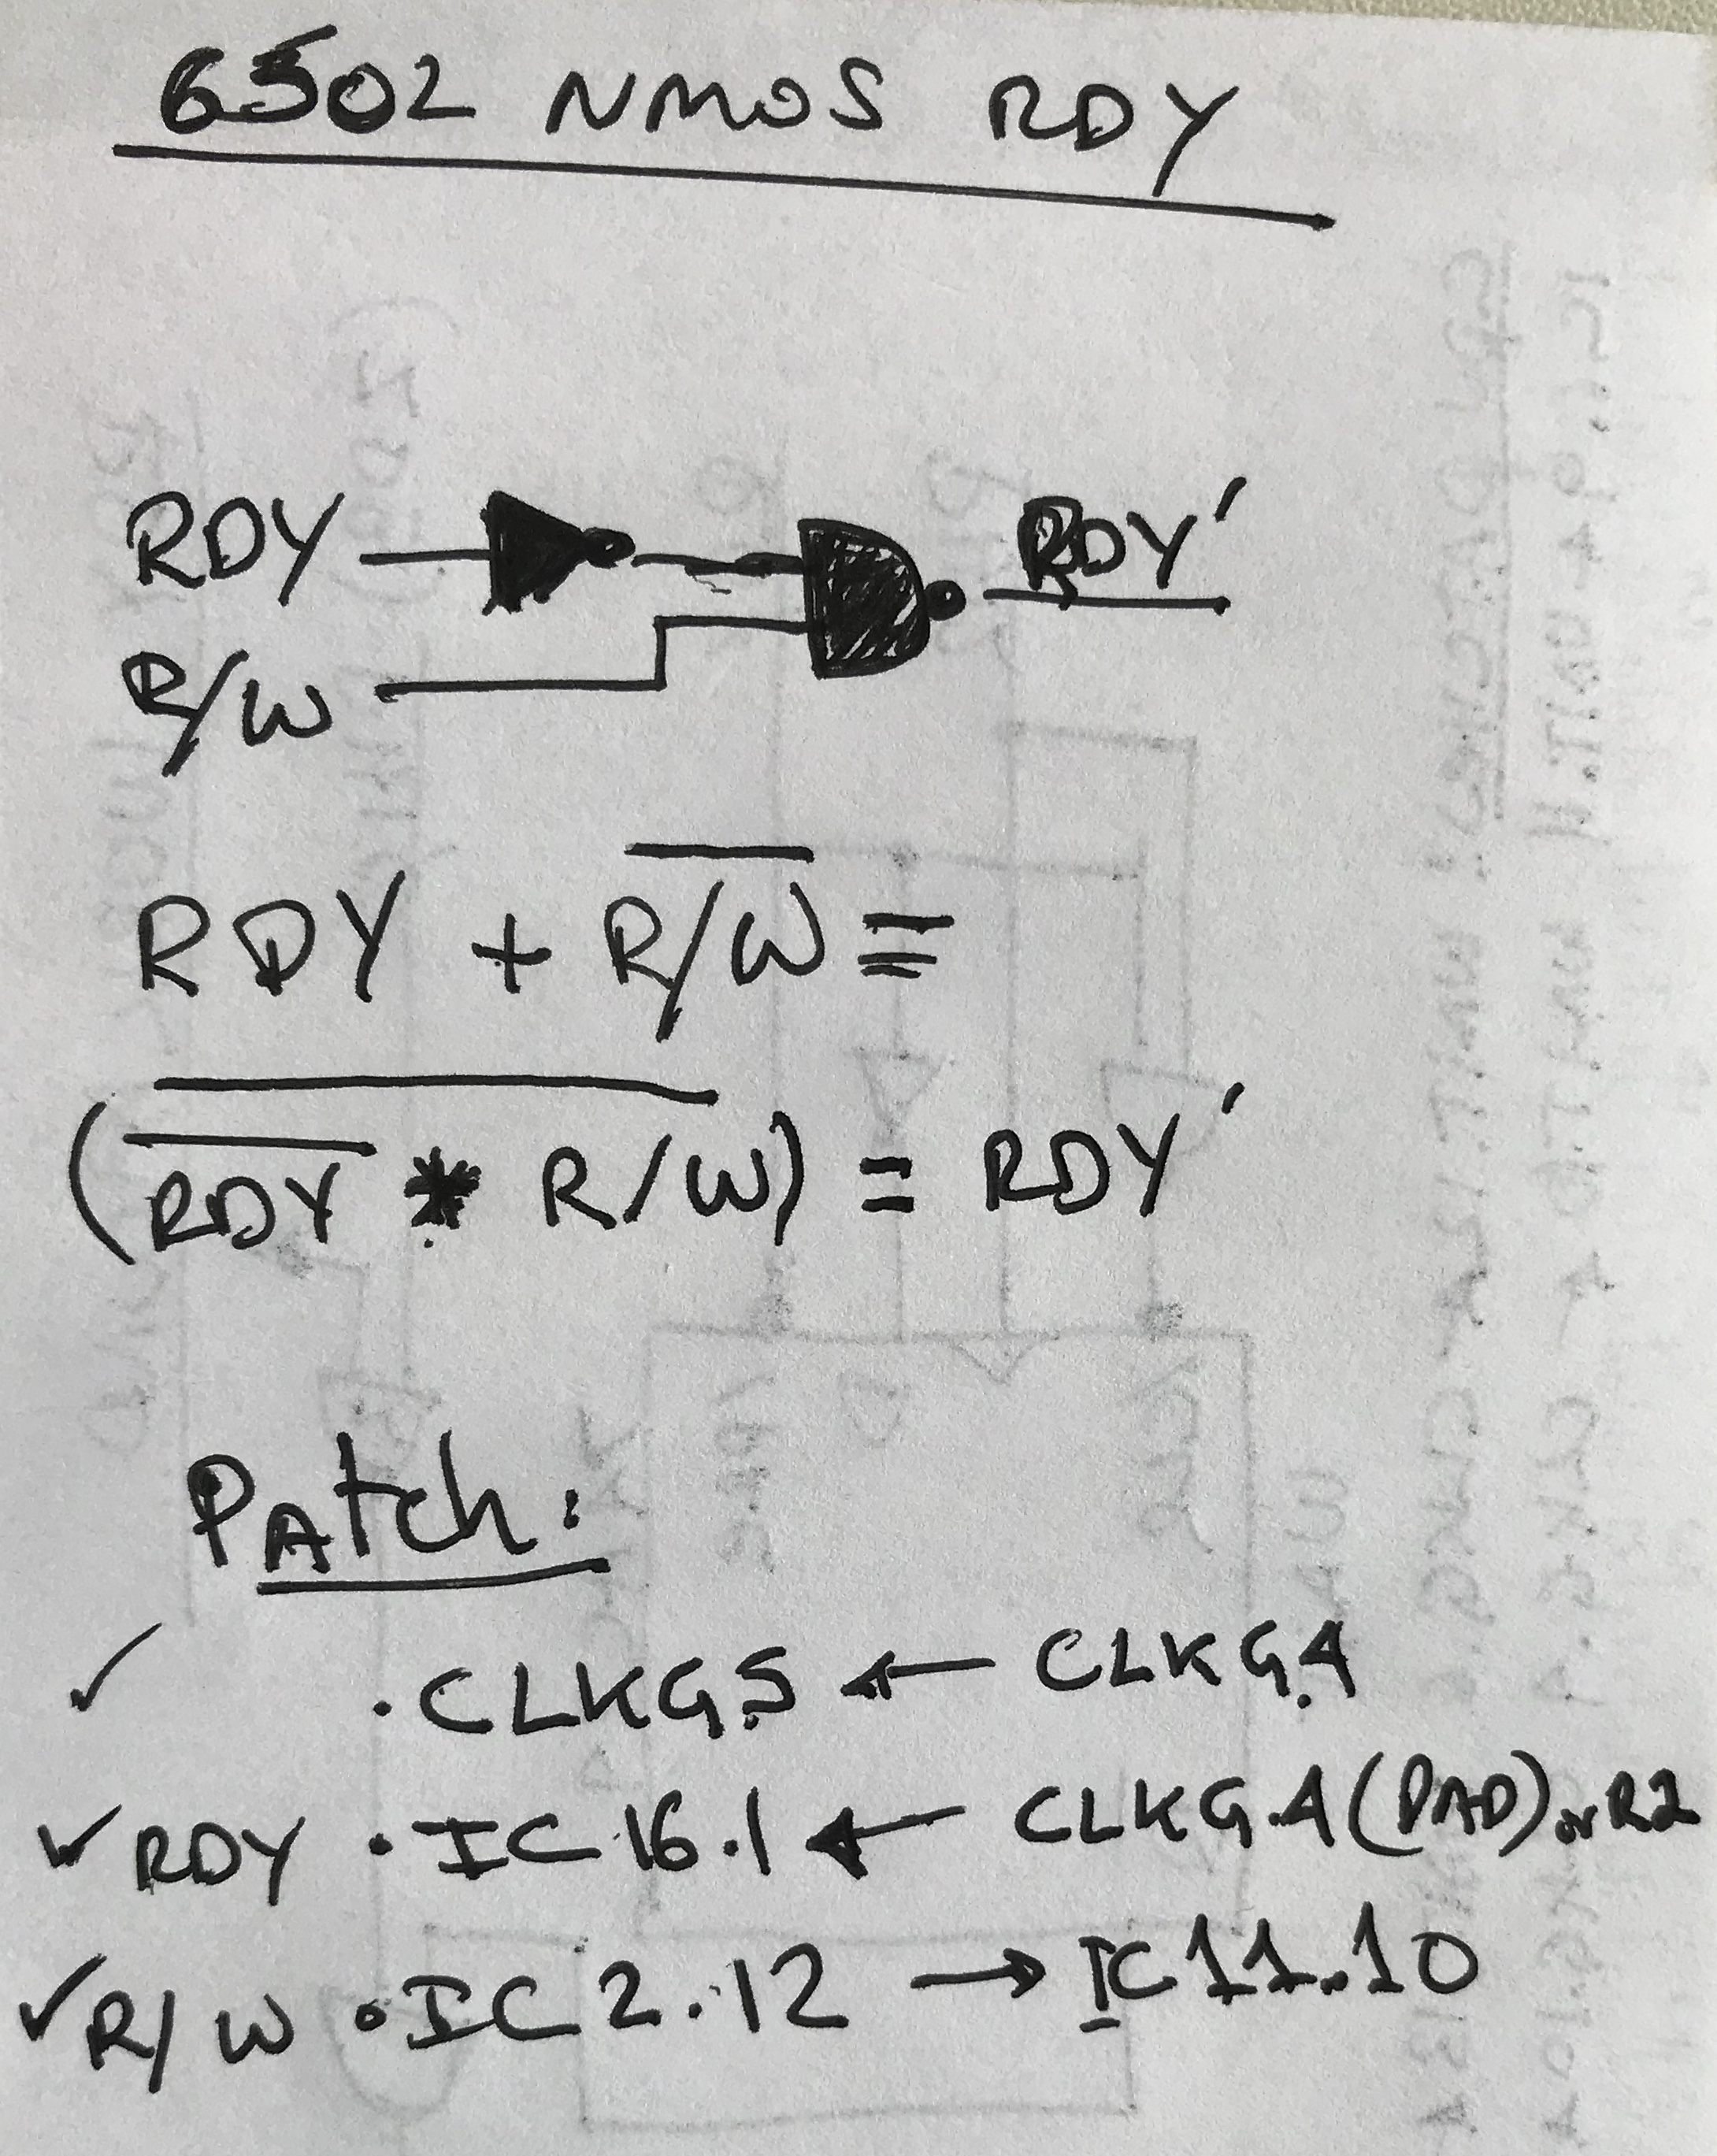 6502 NMOS RDY
RDY RDY'
R/W
RDY + R/W =
(RDY * R/W) = RDY'
PAtch:
✓ . CLKG.5 ← CLKG.4
✓ RDY . IC 16.1 ← CLKG.4 (PAD) or R2
✓ R/W . IC 2.12 → IC11.10